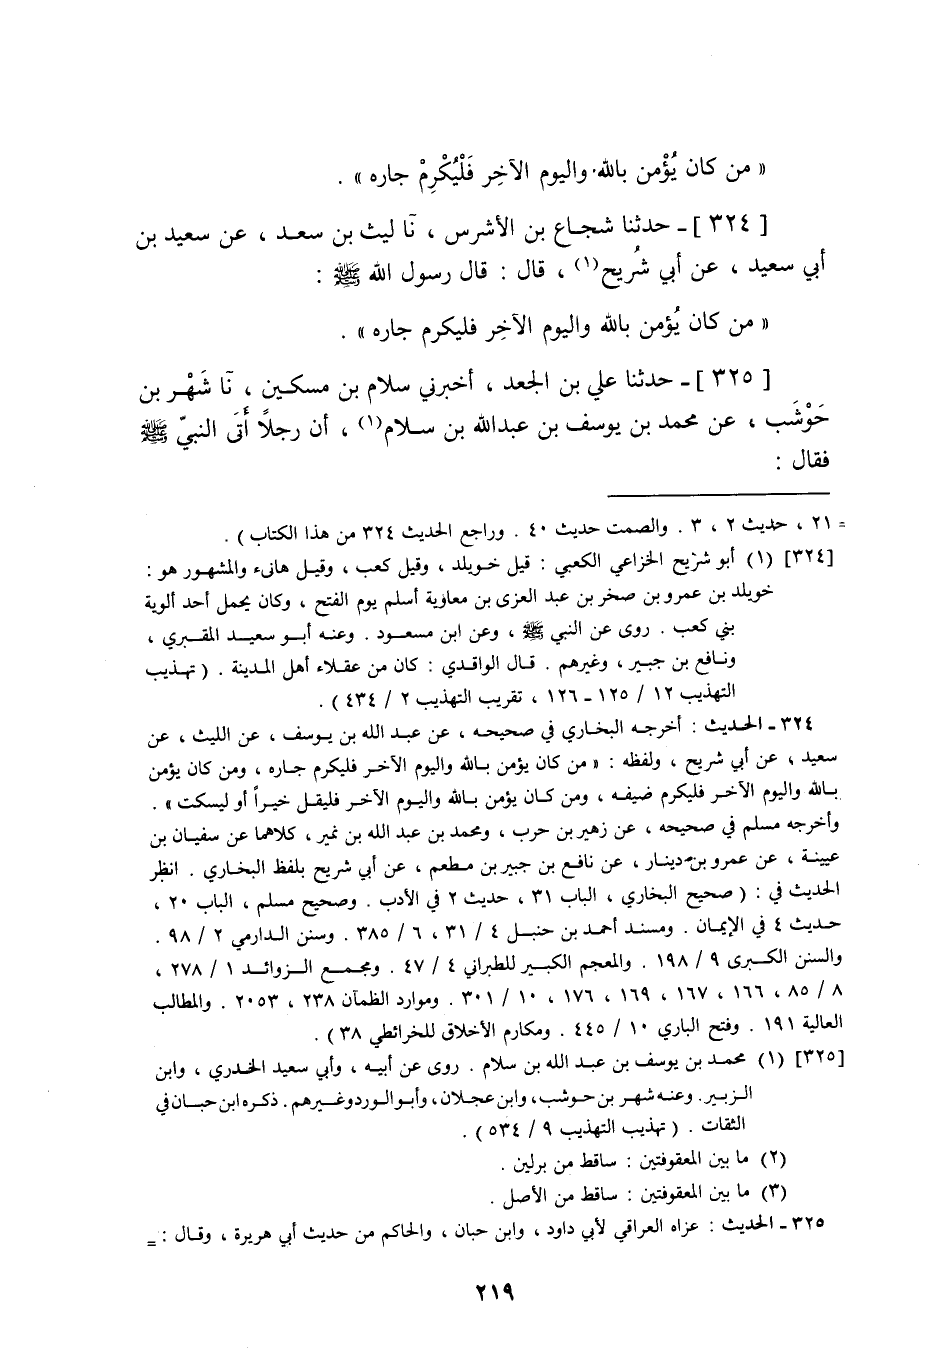 « من كان يُؤْمن بالله واليوم الآخِر فَلْيُكْرِمْ جاره » .
[ ٣٢٤ ] ـ حدثنا شجاع بن الأشرس ، نَا ليث بن سعد ، عن سعيد بن
أبي سعيد ، عن أبي شُريح(١) ، قال : قال رسول الله ﷺ :
« من كان يُؤمن بالله واليوم الآخِر فليكرم جاره » .
[ ٣٢٥ ] ـ حدثنا علي بن الجعد ، أخبرني سلام بن مسكين ، نَا شَهْر بن
حَوْشَب ، عن محمد بن يوسف بن عبدالله بن سلام(١) ، أن رجلاً أَتَى النبيّ ﷺ
فقال :
= ٢١ ، حديث ٢ ، ٣ . والصمت حديث ٤٠ . وراجع الحديث ٣٢٤ من هذا الكتاب ) .
[٣٢٤] (١) أبو شريح الخزاعي الكعبي : قيل خويلد ، وقيل كعب ، وقيل هانىء والمشهور هو :
خويلد بن عمرو بن صخر بن عبد العزى بن معاوية أسلم يوم الفتح ، وكان يحمل أحد ألوية
بني كعب . روى عن النبي ﷺ ، وعن ابن مسعود . وعنه أبو سعيد المقبري ،
ونافع بن جبير ، وغيرهم . قال الواقدي : كان من عقلاء أهل المدينة . ( تهذيب
التهذيب ١٢ / ١٢٥ ـ ١٢٦ ، تقريب التهذيب ٢ / ٤٣٤ ) .
٣٢٤ ـ الحديث : أخرجه البخاري في صحيحه ، عن عبد الله بن يوسف ، عن الليث ، عن
سعيد ، عن أبي شريح ، ولفظه : « من كان يؤمن بالله واليوم الآخر فليكرم جاره ، ومن كان يؤمن
بالله واليوم الآخر فليكرم ضيفه ، ومن كان يؤمن بالله واليوم الآخر فليقل خيراً أو ليسكت » .
وأخرجه مسلم في صحيحه ، عن زهير بن حرب ، ومحمد بن عبد الله بن نمير ، كلاهما عن سفيان بن
عيينة ، عن عمرو بن دينار ، عن نافع بن جبير بن مطعم ، عن أبي شريح بلفظ البخاري . انظر
الحديث في : ( صحيح البخاري ، الباب ٣١ ، حديث ٢ في الأدب . وصحيح مسلم ، الباب ٢٠ ،
حديث ٤ في الإيمان . ومسند أحمد بن حنبل ٤ / ٣١ ، ٦ / ٣٨٥ . وسنن الدارمي ٢ / ٩٨ .
والسنن الكبرى ٩ / ١٩٨ . والمعجم الكبير للطبراني ٤ / ٤٧ . ومجمع الزوائد ١ / ٢٧٨ ،
٨ / ٨٥ ، ١٦٦ ، ١٦٧ ، ١٦٩ ، ١٧٦ ، ١٠ / ٣٠١ . وموارد الظمآن ٢٣٨ ، ٢٠٥٣ . والمطالب
العالية ١٩١ . وفتح الباري ١٠ / ٤٤٥ . ومكارم الأخلاق للخرائطي ٣٨ ) .
[٣٢٥] (١) محمد بن يوسف بن عبد الله بن سلام . روى عن أبيه ، وأبي سعيد الخدري ، وابن
الزبير . وعنه شهر بن حوشب ، وابن عجلان ، وأبو الورد وغيرهم . ذكره ابن حبان في
الثقات . ( تهذيب التهذيب ٩ / ٥٣٤ ) .
(٢) ما بين المعقوفتين : ساقط من برلين .
(٣) ما بين المعقوفتين : ساقط من الأصل .
٣٢٥ ـ الحديث : عزاه العراقي لأبي داود ، وابن حبان ، والحاكم من حديث أبي هريرة ، وقال : =
٢١٩